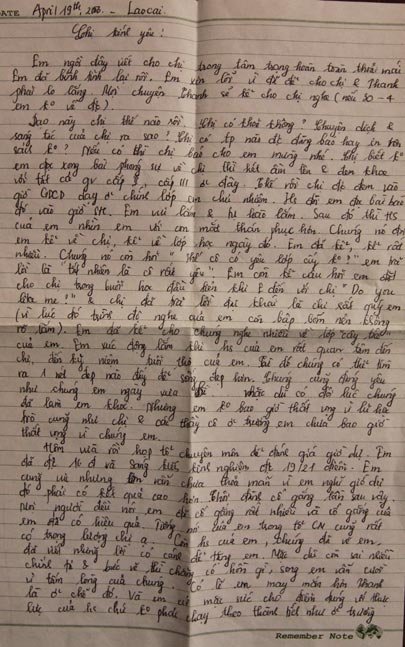 DATE April 19th, 2003. - Laocai.
Chị kính yêu!
Em ngồi đây viết cho chị trong tâm trạng hoàn toàn thoải mái
Em đã bình tĩnh lại rồi. Em xin lỗi vì đã để cho chị & Thanh
phải lo lắng. Mọi chuyện Thanh sẽ kể cho chị nghe (nếu 30-4
em ko về đc).
Dạo này chị thế nào rồi. Chị có khoẻ không? Chuyện dịch &
sáng tác của chị ra sao? Chị có tp nào đc đăng báo hay in trên
sách ko? Nếu có thì chị báo cho em mừng nhé. Chị biết ko
em đọc xong bài phóng sự về chị thì hét ầm lên & đem khoe
với tất cả gv cấp 2, cấp III ở đây. Thế rồi chị đã đem vào
giờ GDCD dạy ở chính lớp em chủ nhiệm. Hs đòi em đọc bài báo
đó vào giờ SH. Em vui lắm & tự hào lắm. Sau đó thì HS
của em nhìn em với con mắt thán phục hơn. Chúng nó đòi
em kể về chị, kể về lớp học ngày đó. Em đã kể, kể rất
nhiều. Chúng nó còn hỏi "Thế cô có yêu lớp ấy ko?" em trả
lời là "tất nhiên là cô rất yêu". Em còn kể câu hỏi em đặt
cho chị trong buổi học đầu tiên khi E đến với chị "Do you
like me?" & chị đã trả lời đại khái là chị rất quý em
(vì lúc đó trình độ nghe của em còn bập bõm nên không
rõ lắm). Em đã kể cho chúng nghe nhiều về lớp, cây bàng
của em. Em xúc động lắm khi hs của em rất quan tâm đến
chị, đến kỷ niệm tuổi thơ của em. Từ đó chúng có thể tìm
ra 1 nét đẹp nào đấy để sống đẹp hơn. Chúng cũng đáng yêu
như chúng em ngày xưa mặc dù có đôi lúc chúng
đã làm em khóc. Nhưng em ko bao giờ thất vọng vì lũ học
trò cũng như chị & các thầy cô ở trường em chưa bao giờ
thất vọng vì chúng em.
Hôm vừa rồi họp tổ chuyên môn để đánh giá giờ dự. Em
đã đạt 16 đ và sáng kiến kinh nghiệm đạt 19/21 điểm. Em
cũng vui nhưng vẫn chưa thoả mãn vì em nghĩ giờ thi
đó phải có kết quả cao hơn. Thôi đành cố gắng lần sau vậy.
Mọi người đều nói em đã cố gắng rất nhiều và cố gắng của
em đã có hiệu quả. Tiếng nói của em trong tổ CN cũng rất
có trọng lượng chị ạ. Còn hs của em, chúng đã vẽ em
đã viết những lời có cánh để tặng em. Mặc dù còn sai nhiều
chính tả & bức vẽ thì chẳng có hồn gì, song em vẫn cười
vì tấm lòng của chúng. Có lẽ em may mắn hơn Thanh
là ở chỗ đó. Và em cũng mức sức cho điểm đúng với thực
lực của hs chứ ko phải chạy theo thành tích như ở trường
Remember Note